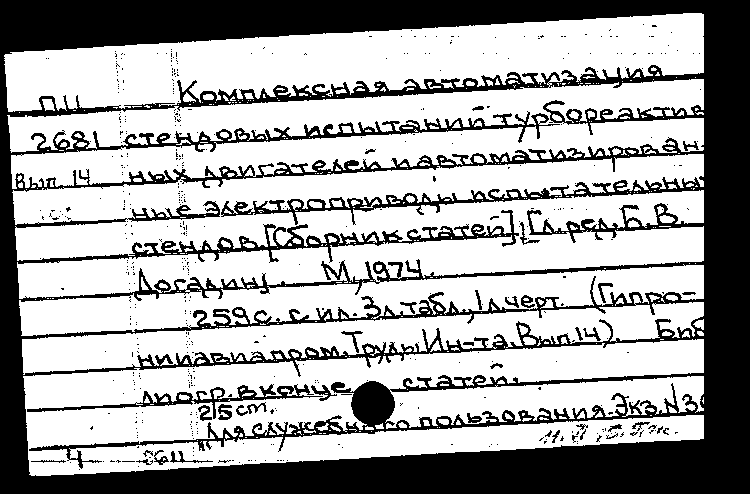 П11 Комплексная автоматизация
2681 стендовых испытаний турбореактив
Вып. 14 ных двигателей и автоматизирован-
ные электроприводы испытательны
стендов. [Сборник статей]. [Гл. ред. Б. В.
Догадин]. М., 1974.
259 с. с ил. 3 л. табл., 1 л. черт. (Гипро-
нииавиапром. Труды Ин-та. Вып. 14). Биб
лиогр. в конце статей.
215 ст.
"Для служебного пользования. Экз. N 30
Ч 8611